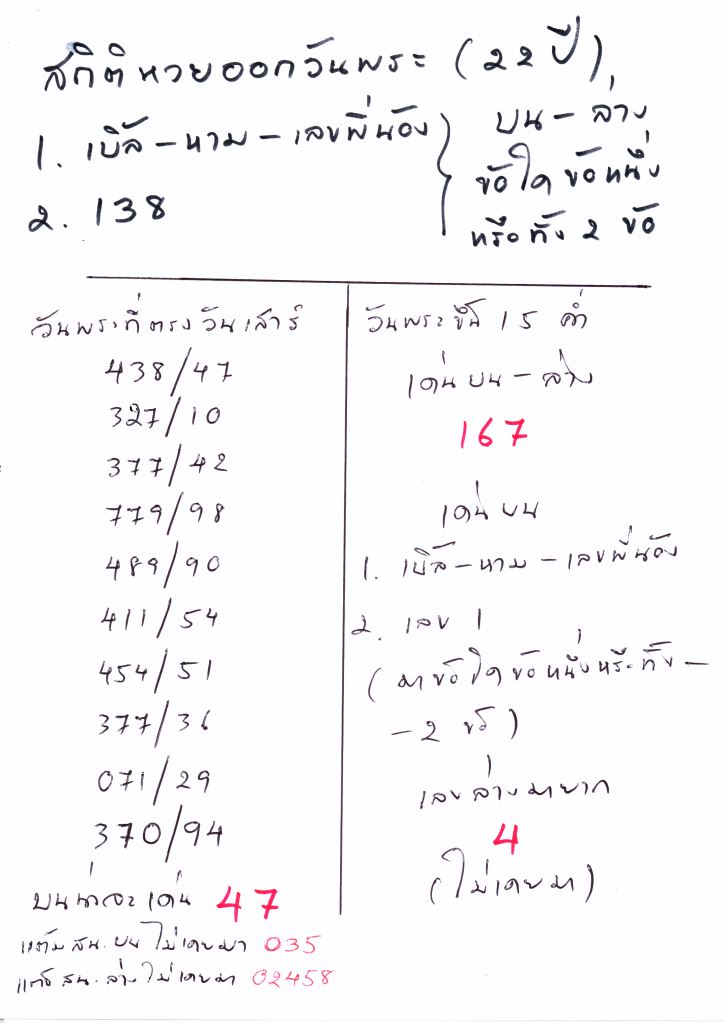 สถิติหวยออกวันพระ (22 ปี)
1. เบิ้ล - หาม - เลขพี่น้อง
2. 138
บน - ล่าง
ข้อใดข้อหนึ่ง
หรือทั้ง 2 ข้อ
วันพระที่ตรงวันเสาร์
438/47
327/10
377/42
779/98
489/90
411/54
454/51
377/36
071/29
370/94
บนน่าจะเด่น 47
แต้ม สน. บน ไม่เคยมา 035
แต้ม สน. ล่าง ไม่เคยมา 02458
วันพระขึ้น 15 ค่ำ
เด่นบน - ล่าง
167
เด่นบน
1. เบิ้ล - หาม - เลขพี่น้อง
2. เลข 1
(มาข้อใดข้อหนึ่งหรือทั้ง -
- 2 ข้อ)
เลขล่างมายาก
4
(ไม่เคยมา)